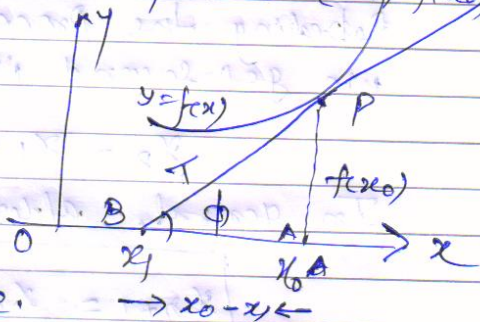 y
y=f(x)
P
T
f(x₀)
B
ϕ
A
O
x₁
x₀ A
x
→ x₀-x₁ ←